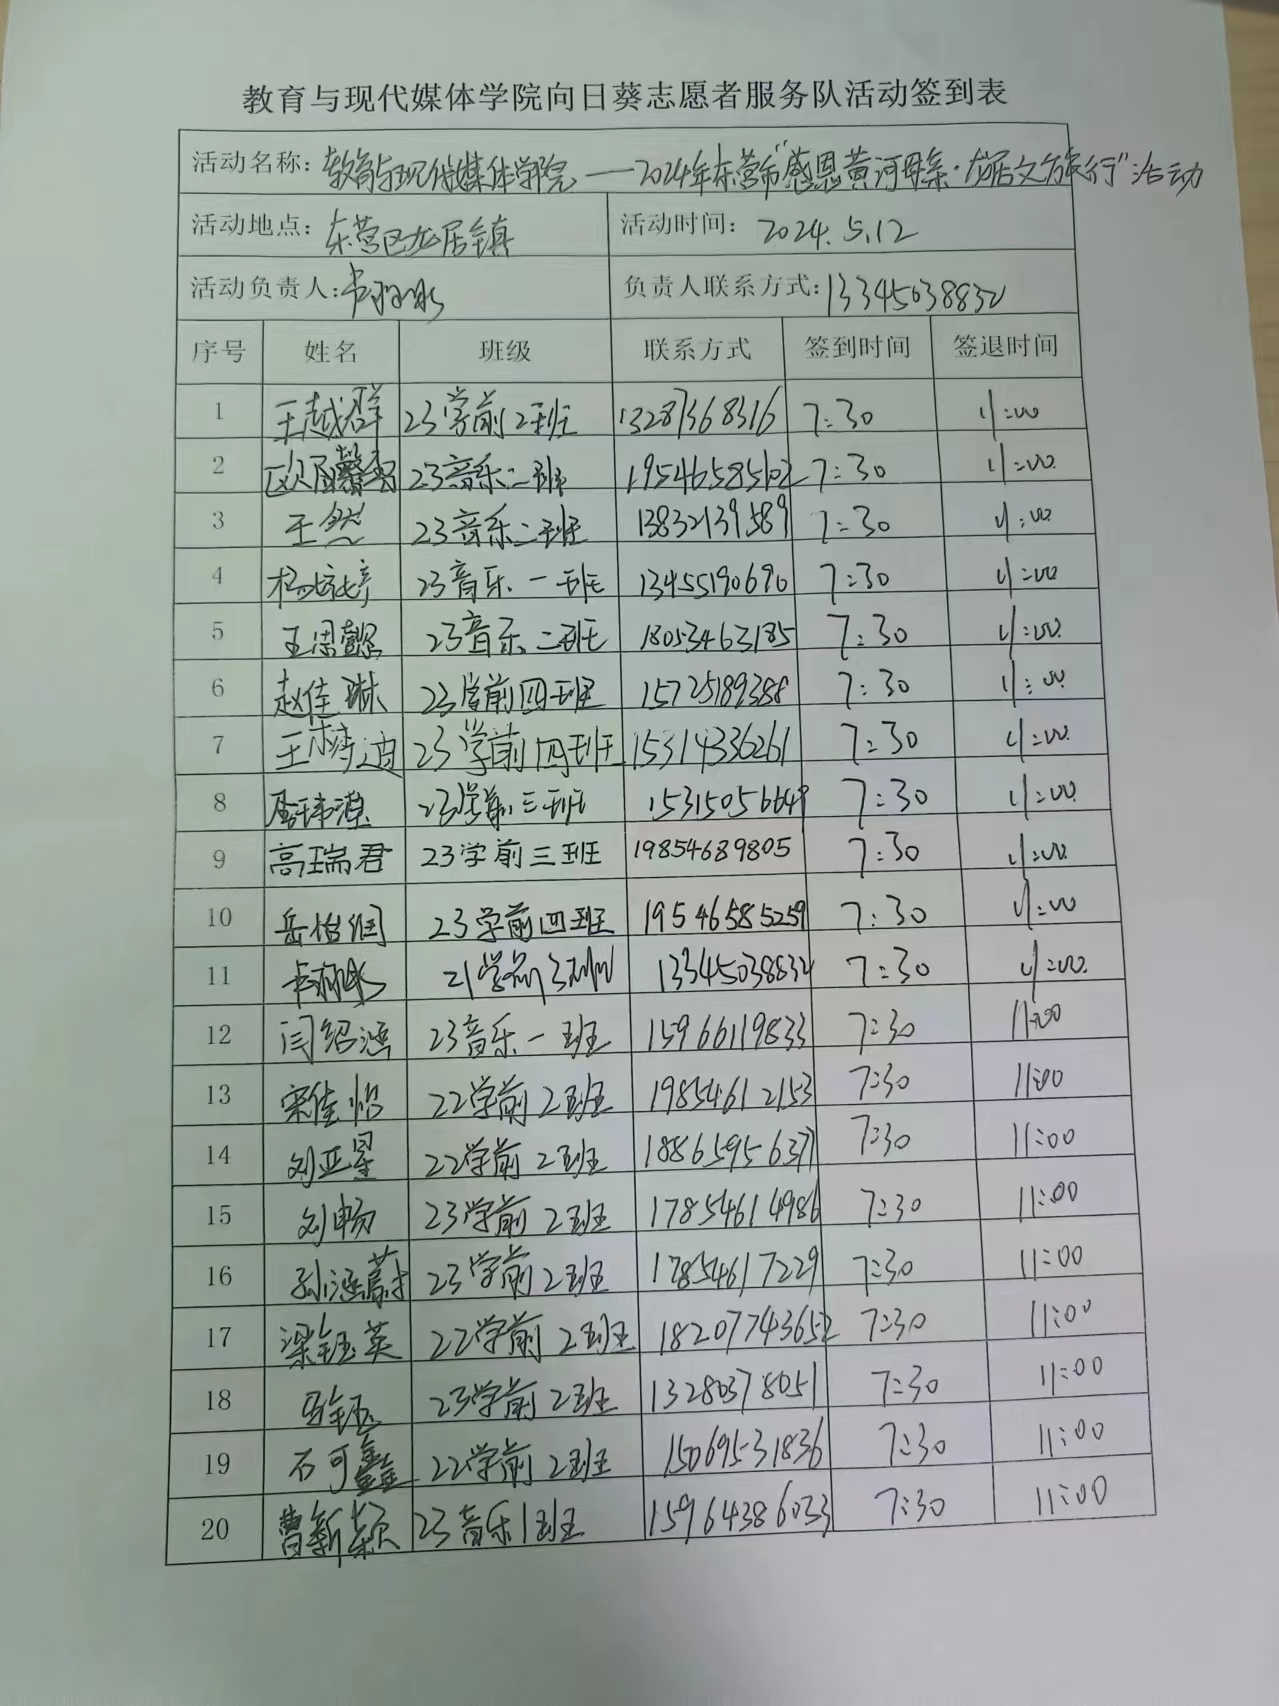 教育与现代媒体学院向日葵志愿者服务队活动签到表
活动名称: 教育与现代媒体学院——2024年东营市"感恩黄河母亲·龙居文旅行"活动
活动地点: 东营区龙居镇 活动时间: 2024.5.12
活动负责人: 负责人联系方式: 13345038832
序号 姓名 班级 联系方式 签到时间 签退时间
1 王越群 23学前2班 13287368316 7:30 11:00
2 23音乐二班 19546585102 7:30 11:00
3 王然 23音乐二班 13832139589 7:30 11:00
4 杨婷婷 23音乐一班 13455190690 7:30 11:00
5 王思懿 23音乐二班 18053463185 7:30 11:00
6 赵佳琳 23学前四班 15725189388 7:30 11:00
7 23学前四班 15314336261 7:30 11:00
8 23学前三班 15315056649 7:30 11:00
9 高瑞君 23学前三班 19854689805 7:30 11:00
10 岳怡润 23学前四班 19546585259 7:30 11:00
11 21学前3班 13345038832 7:30 11:00
12 闫绍涵 23音乐一班 15966119833 7:30 11:00
13 宋佳怡 22学前2班 19854612153 7:30 11:00
14 刘亚星 22学前2班 18865956377 7:30 11:00
15 刘畅 23学前2班 17854614986 7:30 11:00
16 孙涵蔚 23学前2班 17854617229 7:30 11:00
17 梁钰英 22学前2班 18207743652 7:30 11:00
18 马钰 23学前2班 13280378051 7:30 11:00
19 石可鑫 22学前2班 15069531836 7:30 11:00
20 曹新颖 23音乐1班 15964386033 7:30 11:00